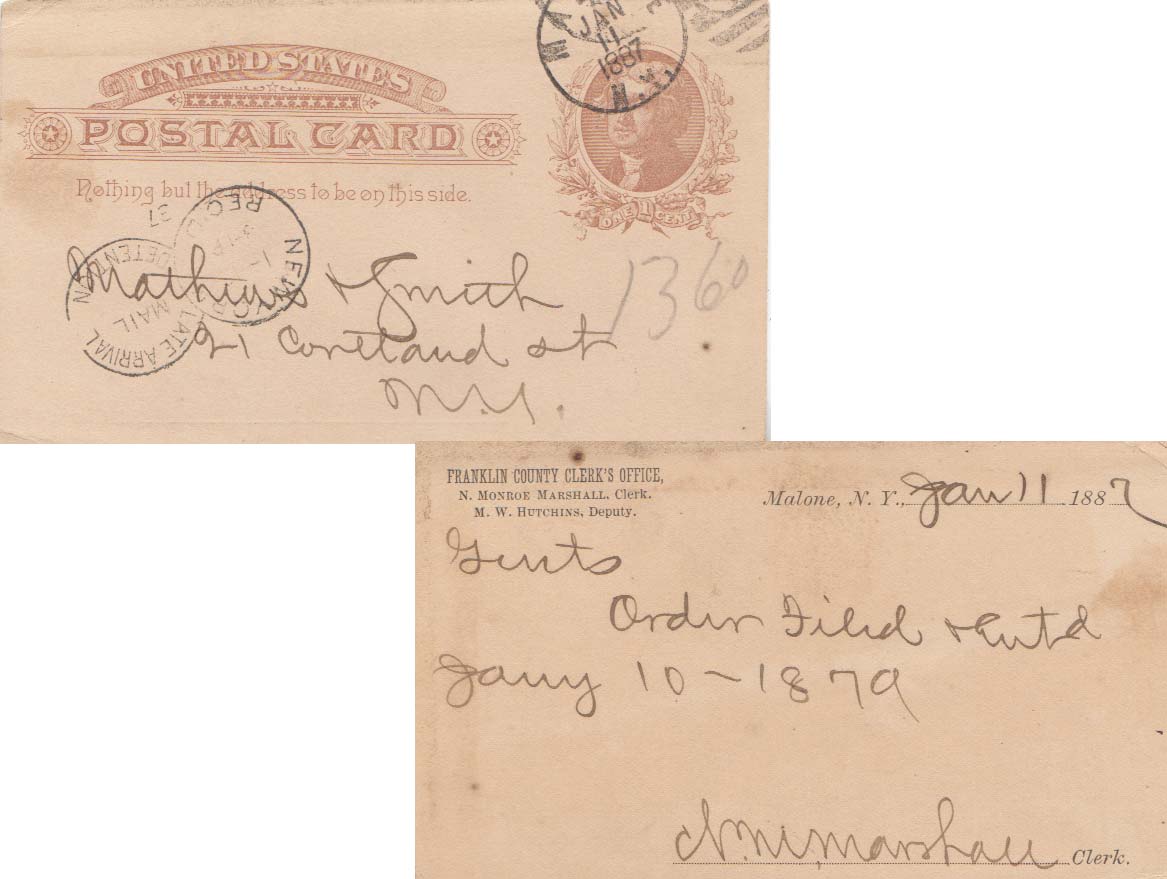 UNITED STATES
POSTAL CARD
Nothing but the address to be on this side.
JAN
11
1887
N.Y.
ONE 1 CENT
NEW YORK
REC'D
87
LATE ARRIVAL
MAIL
DETENTION
Mathews & Smith
21 Cortland st
N.Y.
1360
FRANKLIN COUNTY CLERK'S OFFICE,
N. MONROE MARSHALL, Clerk.
M. W. HUTCHINS, Deputy.
Malone, N. Y., Jan 11 1887
Gents
Order Filed & Entd
Jany 10 - 1879
N. M. Marshall Clerk.